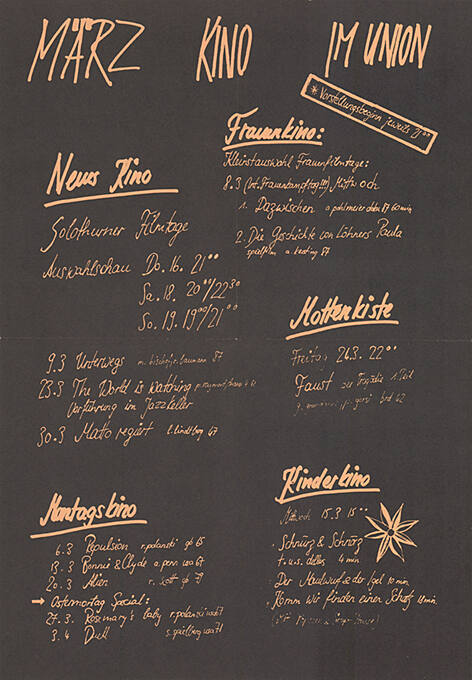 MÄRZ KINO IM UNION
* Vorstellungsbeginn jeweils 21⁰⁰
Neues Kino
Solothurner Filmtage
Auswahlschau Do. 16. 21⁰⁰
Sa. 18. 20⁰⁰/22³⁰
So. 19. 19⁰⁰/21⁰⁰
9.3 Unterwegs 87
23.3 The World is Watching
Vorführung im Jazzkeller
30.3 Matto regiert l. lindtberg 47
Montagskino
6.3 Repulsion r. polanski gb 65
13.3 Bonnie & Clyde a. penn usa 67
20.3 Alien r. scott gb 79
→ Ostermontag Special:
27.3. Rosemary's baby r. polanski usa 67
3.4 Duell s. spielberg usa 71
Frauenkino:
Kleinstauswahl Frauenfilmtage:
8.3 (int. Frauenkampftag!!!) Mittwoch
1. Dazwischen 60 min
2. Die Geschichte von Löhners Paula
spielfilm 87
Mottenkiste
Freitag 24.3. 22⁰⁰
Faust der Tragödie 1. Teil
brd
Kinderkino
Mittwoch 15.3 15⁰⁰
. Schnürz & Schnörz
4 min
. Der Maulwurf & der Igel 10 min.
. Komm wir finden einen Schatz